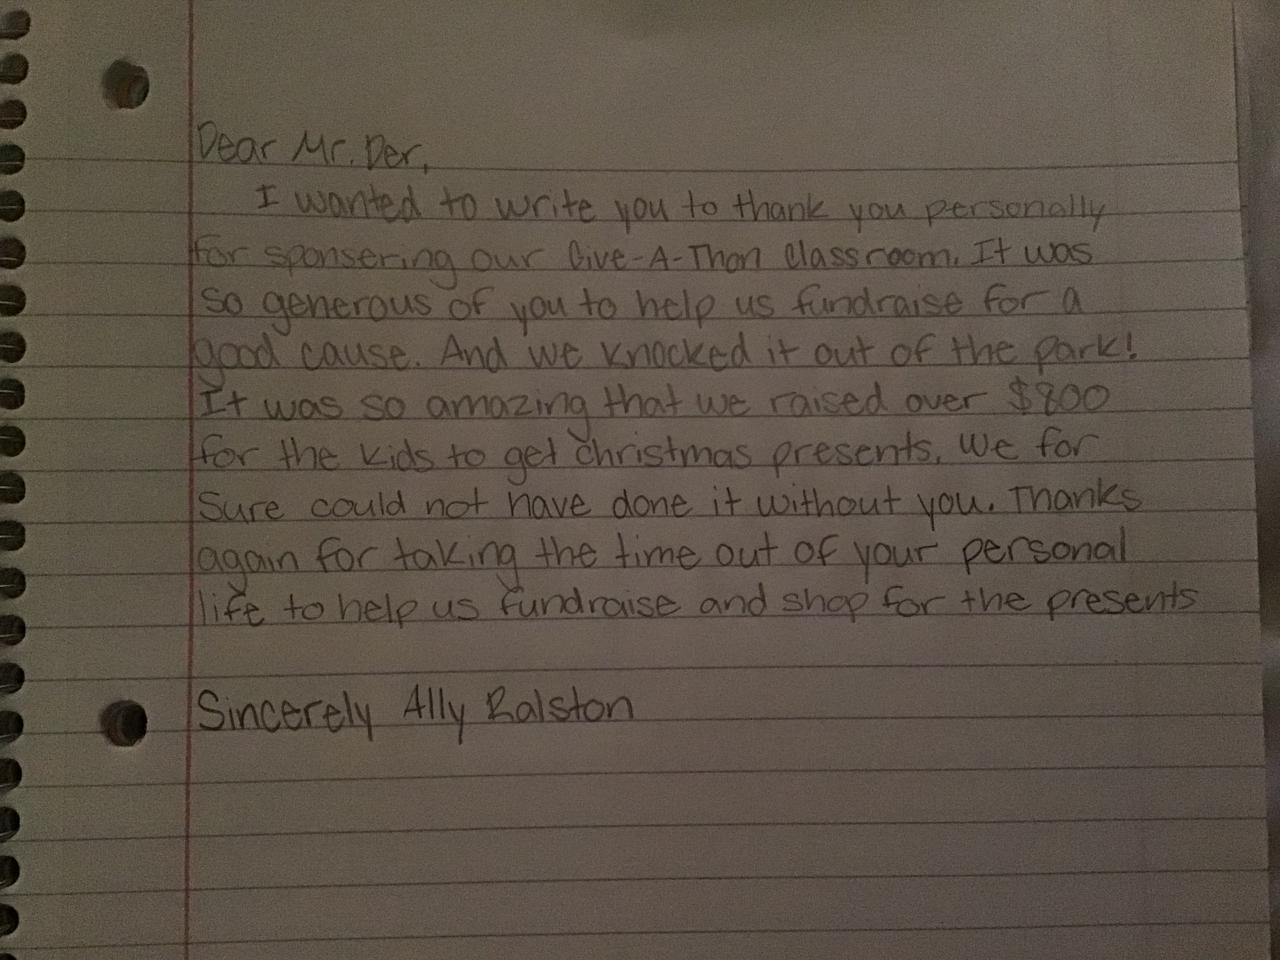 Dear Mr. Der,
I wanted to write you to thank you personally
for sponsering our Give-A-Thon Classroom. It was
so generous of you to help us fundraise for a
good cause. And we knocked it out of the park!
It was so amazing that we raised over $800
for the kids to get christmas presents. We for
sure could not have done it without you. Thanks
again for taking the time out of your personal
life to help us fundraise and shop for the presents
Sincerely Ally Ralston